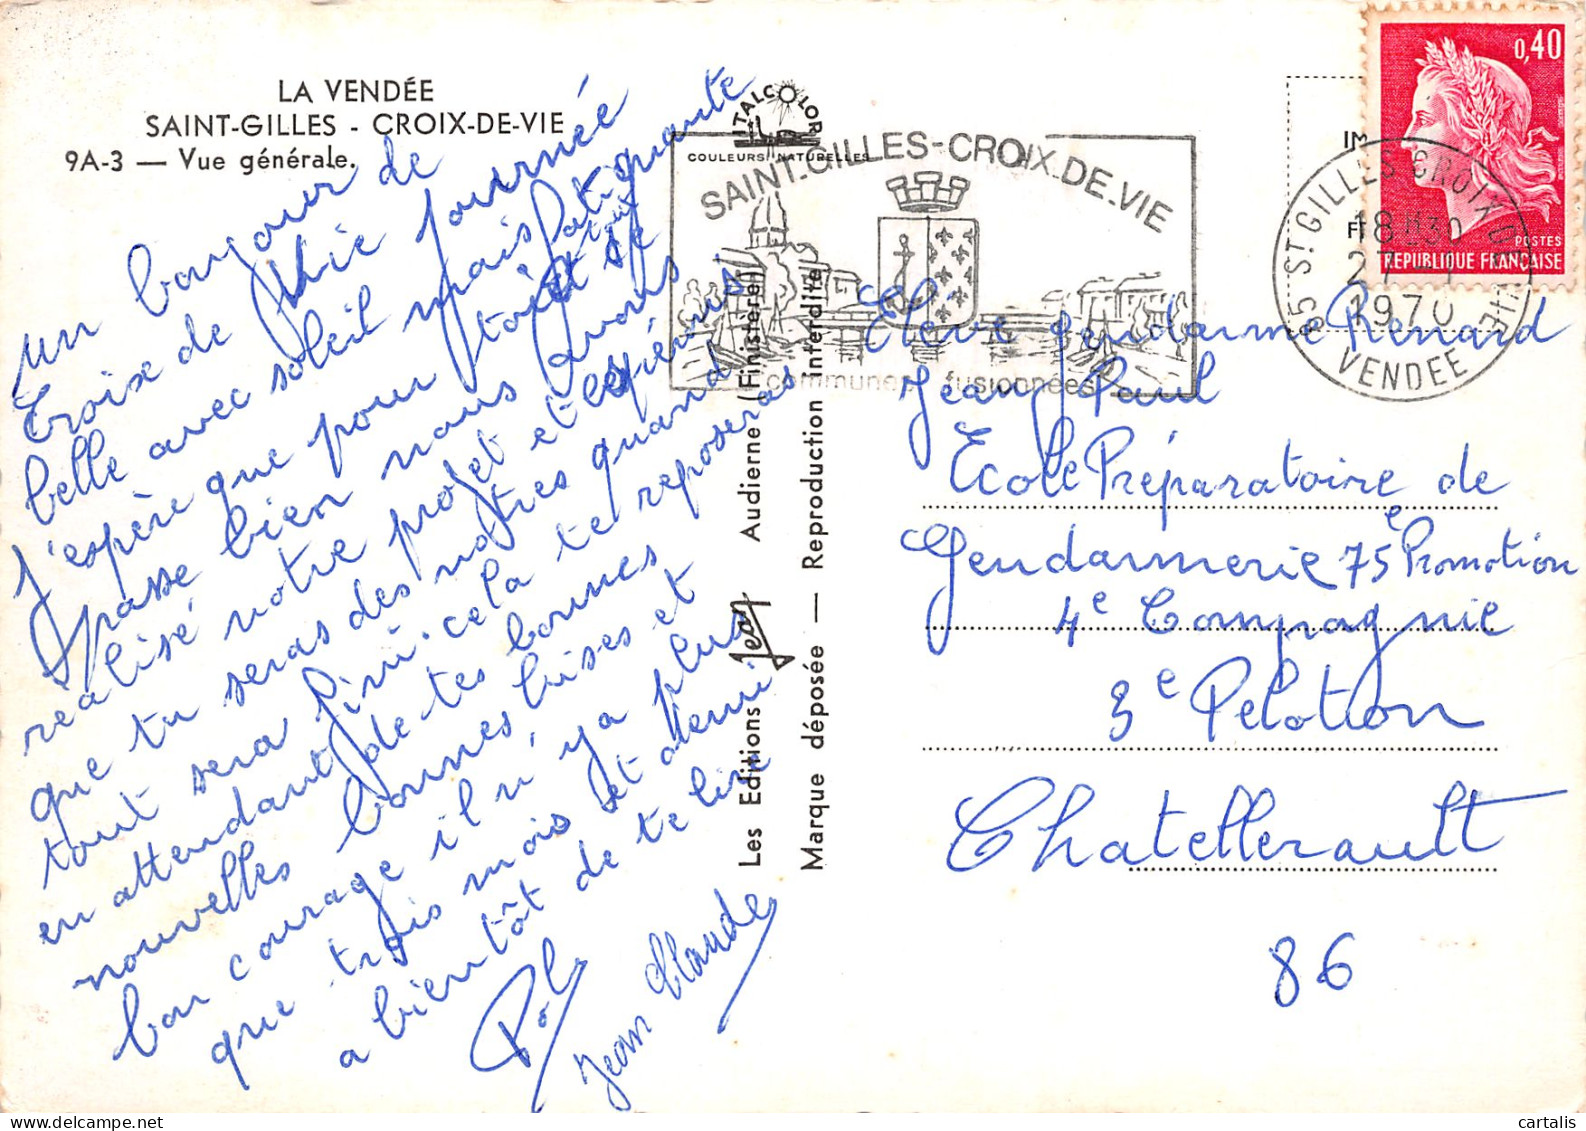 LA VENDÉE
SAINT-GILLES - CROIX-DE-VIE
9A-3 — Vue générale.
un bonjour de
Croise de Vie journée
belle avec soleil mais fatiguante
J'espère que pour toi tout se
passe bien nous avons
réalisé notre projet et espérons
que tu seras des notres quand
tout sera fini. cela te reposeras
en attendant de tes bonnes
nouvelles bonnes bises et
bon courage il n'y a plus
que trois mois et demi
a bientôt de te lire
Pol
Jean Claude
ITALCOLOR
COULEURS NATURELLES
Les Editions Jean Audierne (Finistère)
Marque déposée — Reproduction Interdite
SAINT-GILLES-CROIX-DE-VIE
communes fusionnées
IM
0,40
POSTES
REPUBLIQUE FRANÇAISE
85 ST GILLES CROIX DE VIE
18H30
27
1970
VENDEE
Elève gendarme Renard
Jean Paul
Ecole Préparatoire de
Gendarmerie 75e Promotion
4e Compagnie
3e Peloton
Chatellerault
86
cartalis